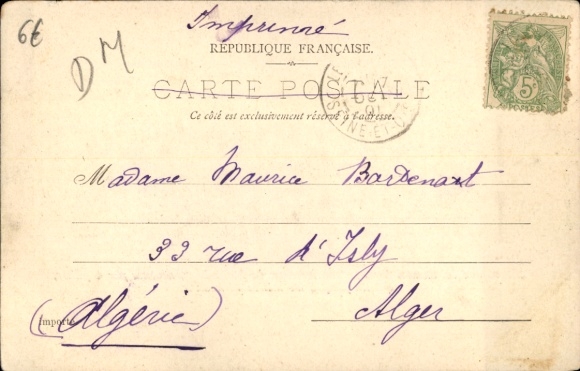 6€
DM
Imprimé
RÉPUBLIQUE FRANÇAISE.
CARTE POSTALE
Ce côté est exclusivement réservé à l'adresse.
5c
POSTES
SEINE-ET-
Madame Maurice
33 rue d'Isly
Alger
(Algérie)